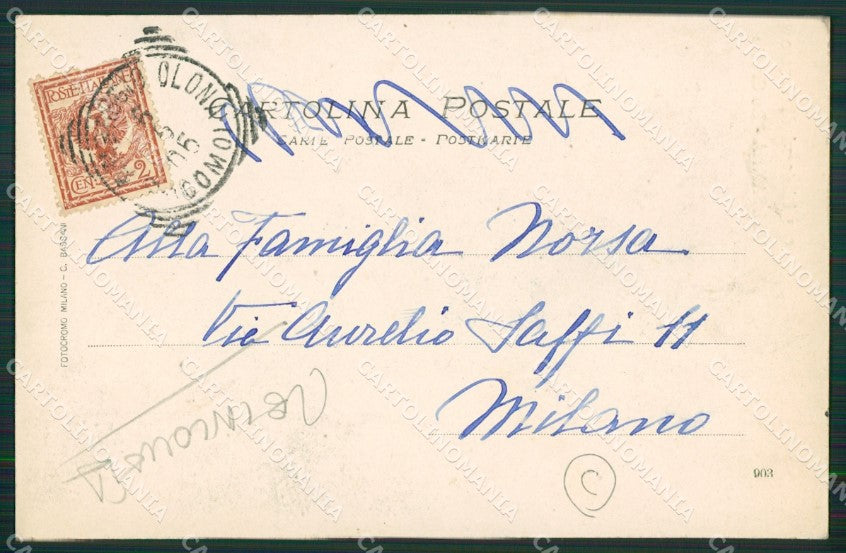 POSTE ITALIANE
CEN. 2
OLONA (COMO)
5
05
CARTOLINA POSTALE
CARTE POSTALE - POSTKARTE
Alla Famiglia Norsa
Via Aurelio Saffi 11
Milano
FOTOCROMO MILANO - C.
C
903
CARTOLINOMANIA